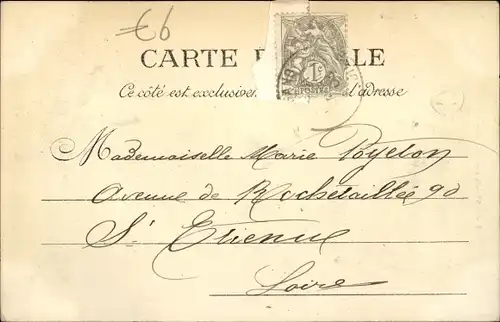 €6
CARTE P ALE
Ce côté est exclusivem l'adresse
1c
POSTES
Mademoiselle Marie Poyeton
Avenue de Rochetaillée 90
St Etienne
Loire